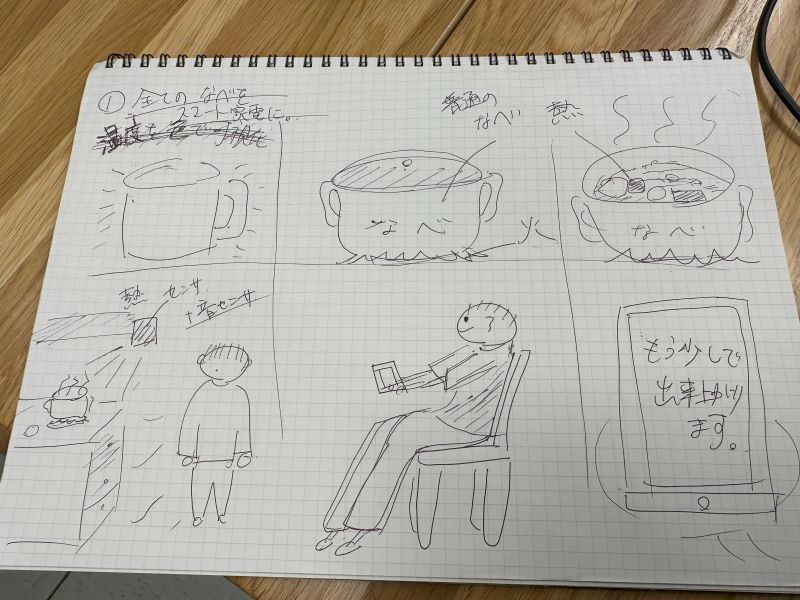 ① 全てのなべを
スマート家電に。
普通の
なべ
熱
なべ
火
なべ
熱センサ
+音センサ
もう少しで
出来上がり
ます。